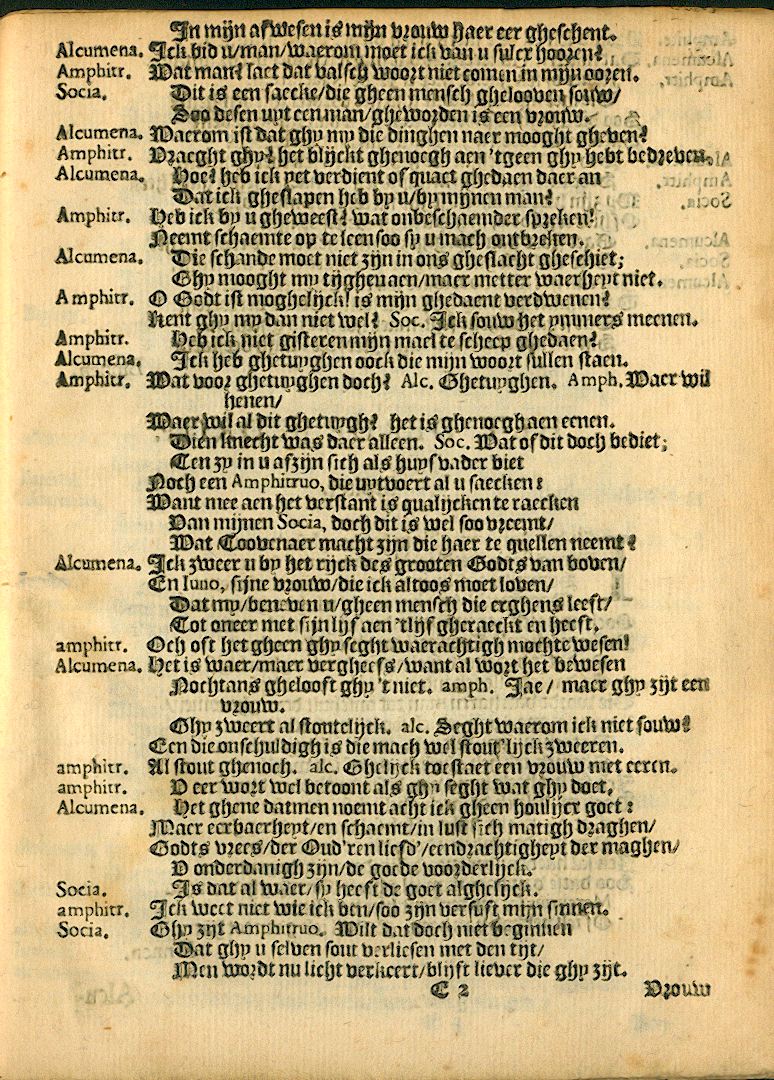 In mijn afwesen is mijn vrouw haer eer gheschent.
Alcumena. Ick bid u/man/waerom moet ick van u sulcx hooren?
Amphitr. Wat man? laet dat valsch woort niet comen in mijn ooren.
Socia. Dit is een saecke/die gheen mensch ghelooven souw/
Soo desen uyt een man/gheworden is een vrouw.
Alcumena. Waerom ist dat ghy my die dinghen naer mooght gheven?
Amphitr. Vraeght ghy? het blijckt ghenoegh aen 'tgeen ghy hebt bedreven.
Alcumena. Hoe? heb ick yet verdient of quaet ghedaen daer an
Dat ick gheslapen heb by u/by mijnen man?
Amphitr. Heb ick by u gheweest? wat onbeschaemder spreken!
Neemt schaemte op te leen soo sy u mach ontbreken.
Alcumena. Die schande moet niet zijn in ons gheslacht gheschiet;
Ghy mooght my tijghen aen/maer metter waerheyt niet.
Amphitr. O Godt ist moghelijck! is mijn ghedaent verdwenen?
Kent ghy my dan niet wel? Soc. Ick souw het ymmers meenen.
Amphitr. Heb ick niet gisteren mijn mael te scheep ghedaen?
Alcumena. Ick heb ghetuyghen oock die mijn woort sullen staen.
Amphitr. Wat voor ghetuyghen doch? Alc. Ghetuyghen. Amph. Waer wil
henen/
Waer wil al dit ghetuygh? het is ghenoegh aen eenen.
Dien knecht was daer alleen. Soc. Wat of dit doch bediet;
Ten zy in u afzijn sich als huys vader biet
Noch een Amphitruo, die uytvoert al u saecken:
Want mee aen het verstant is qualijcken te raecken
Van mijnen Socia, doch dit is wel soo vreemt/
Wat Toovenaer macht zijn die haer te quellen neemt?
Alcumena. Ick zweer u by het rijck des grooten Godts van boven/
En Iuno, sijne vrouw/die ick altoos moet loven/
Dat my/beneven u/gheen mensch die erghens leeft/
Tot oneer met sijn lijf aen 'tlijf gheraeckt en heeft.
amphitr. Och oft het gheen ghy seght waerachtigh mochte wesen!
Alcumena. Het is waer/maer vergheefs/want al wort het bewesen
Nochtans ghelooft ghy 't niet. amph. Jae/ maer ghy zijt een
vrouw.
Ghy zweert al stoutelijck. alc. Seght waerom ick niet souw?
Een die onschuldigh is die mach wel stout'lijck zweeren.
amphitr. Al stout ghenoch. alc. Ghelijck toestaet een vrouw met eeren.
amphitr. D eer wort wel betoont als ghy seght wat ghy doet.
Alcumena. Het ghene datmen noemt acht ick gheen houlijcx goet:
Maer eerbaerheyt/en schaemt/in lust sich matigh draghen/
Godts vrees/der Oud'ren liefd'/eendrachtigheyt der maghen/
D onderdanigh zijn/de goede voorderlijck.
Socia. Is dat al waer/sy heeft de goet alghelijck.
amphitr. Ick weet niet wie ick ben/soo zijn versuft mijn sinnen.
Socia. Ghy zijt Amphitruo. Wilt dat doch niet beginnen
Dat ghy u selven sout verliesen met den tijt/
Men wordt nu licht verkeert/blijft liever die ghy zijt.
C 2 Vrouw